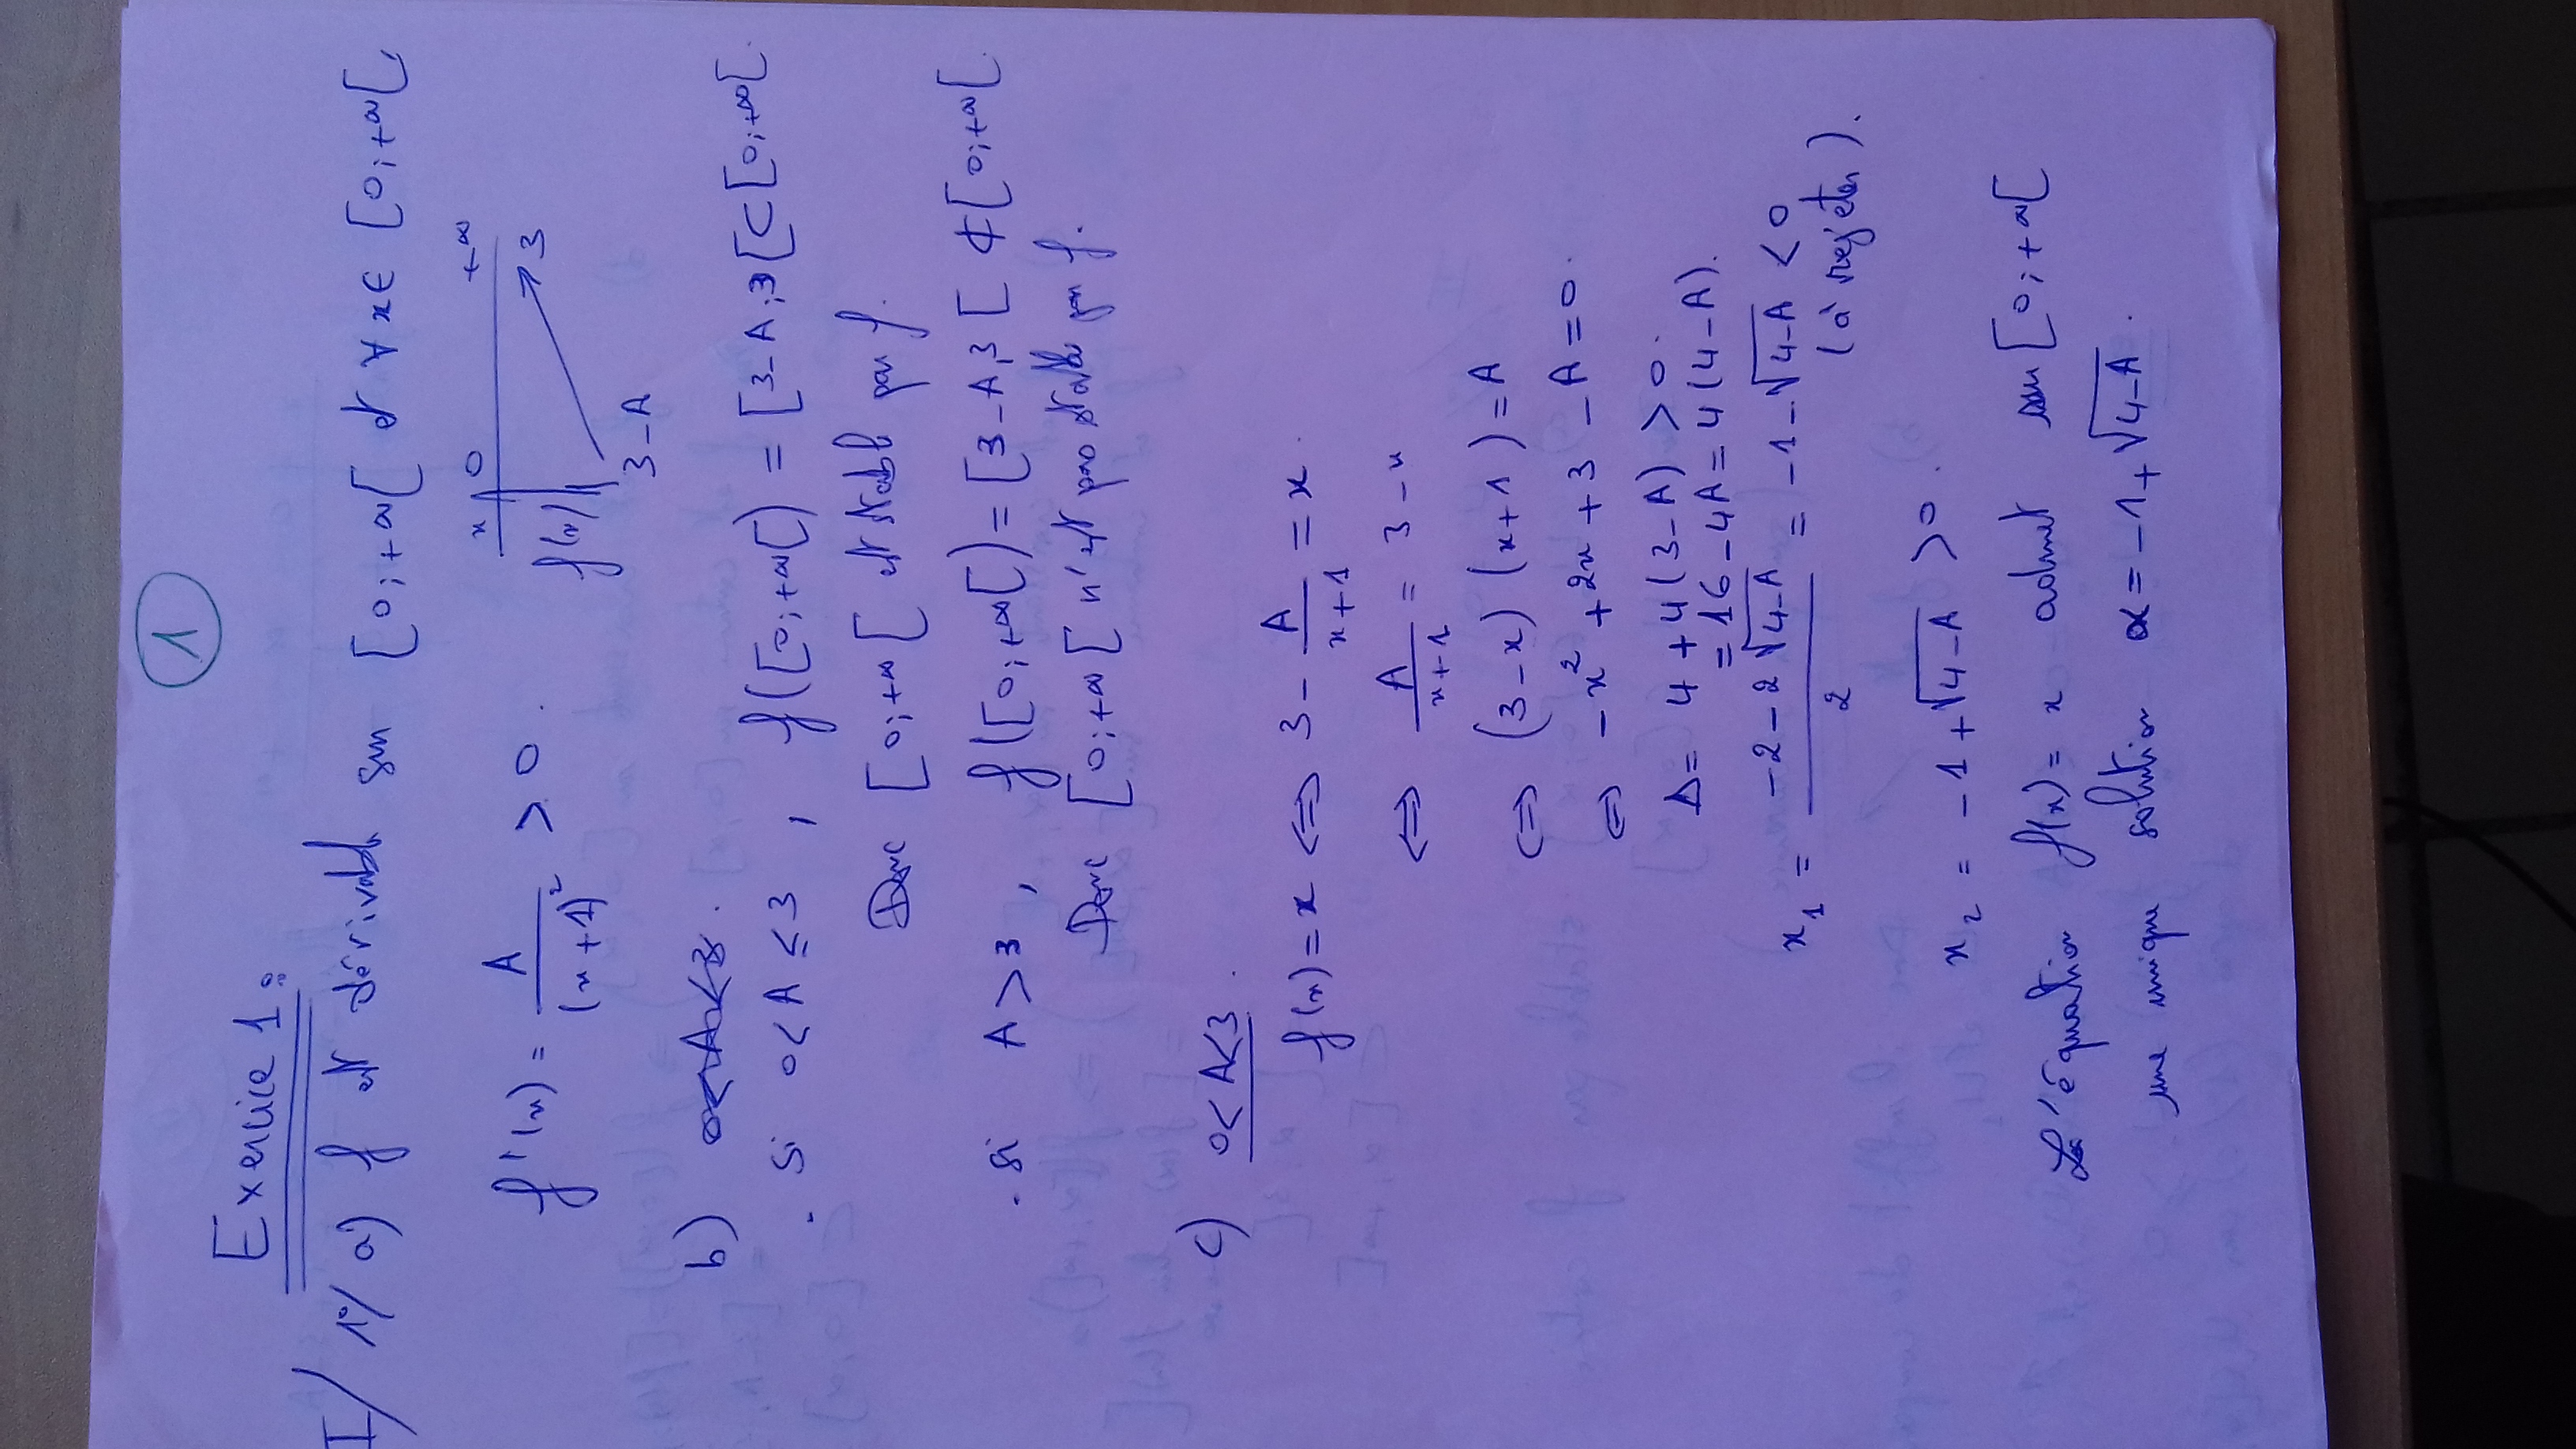 ①
Exercice 1 :
I/ 1°/ a) f est dérivable sur [0;+∞[ et ∀ x ∈ [0;+∞[,
f'(x) = A/(x+1)² > 0.
x 0 +∞
f(x) 3-A 3
b) 0<A<3.
. Si 0<A≤3, f([0;+∞[) = [3-A;3[ ⊂ [0;+∞[.
Donc [0;+∞[ est stable par f.
. si A>3, f([0;+∞[) = [3-A,3[ ⊄ [0;+∞[.
Donc [0;+∞[ n'est pas stable par f.
c) 0<A<3.
f(x)=x ⇔ 3 - A/(x+1) = x.
⇔ A/(x+1) = 3-x
⇔ (3-x)(x+1) = A
⇔ -x²+2x+3-A=0.
Δ= 4+4(3-A) >0.
= 16-4A = 4(4-A).
x₁ = (-2-2√(4-A))/2 = -1-√(4-A) < 0
(à rejeter).
x₂ = -1+√(4-A) >0.
L'équation f(x)=x admet sur [0;+∞[
une unique solution α=-1+√(4-A).